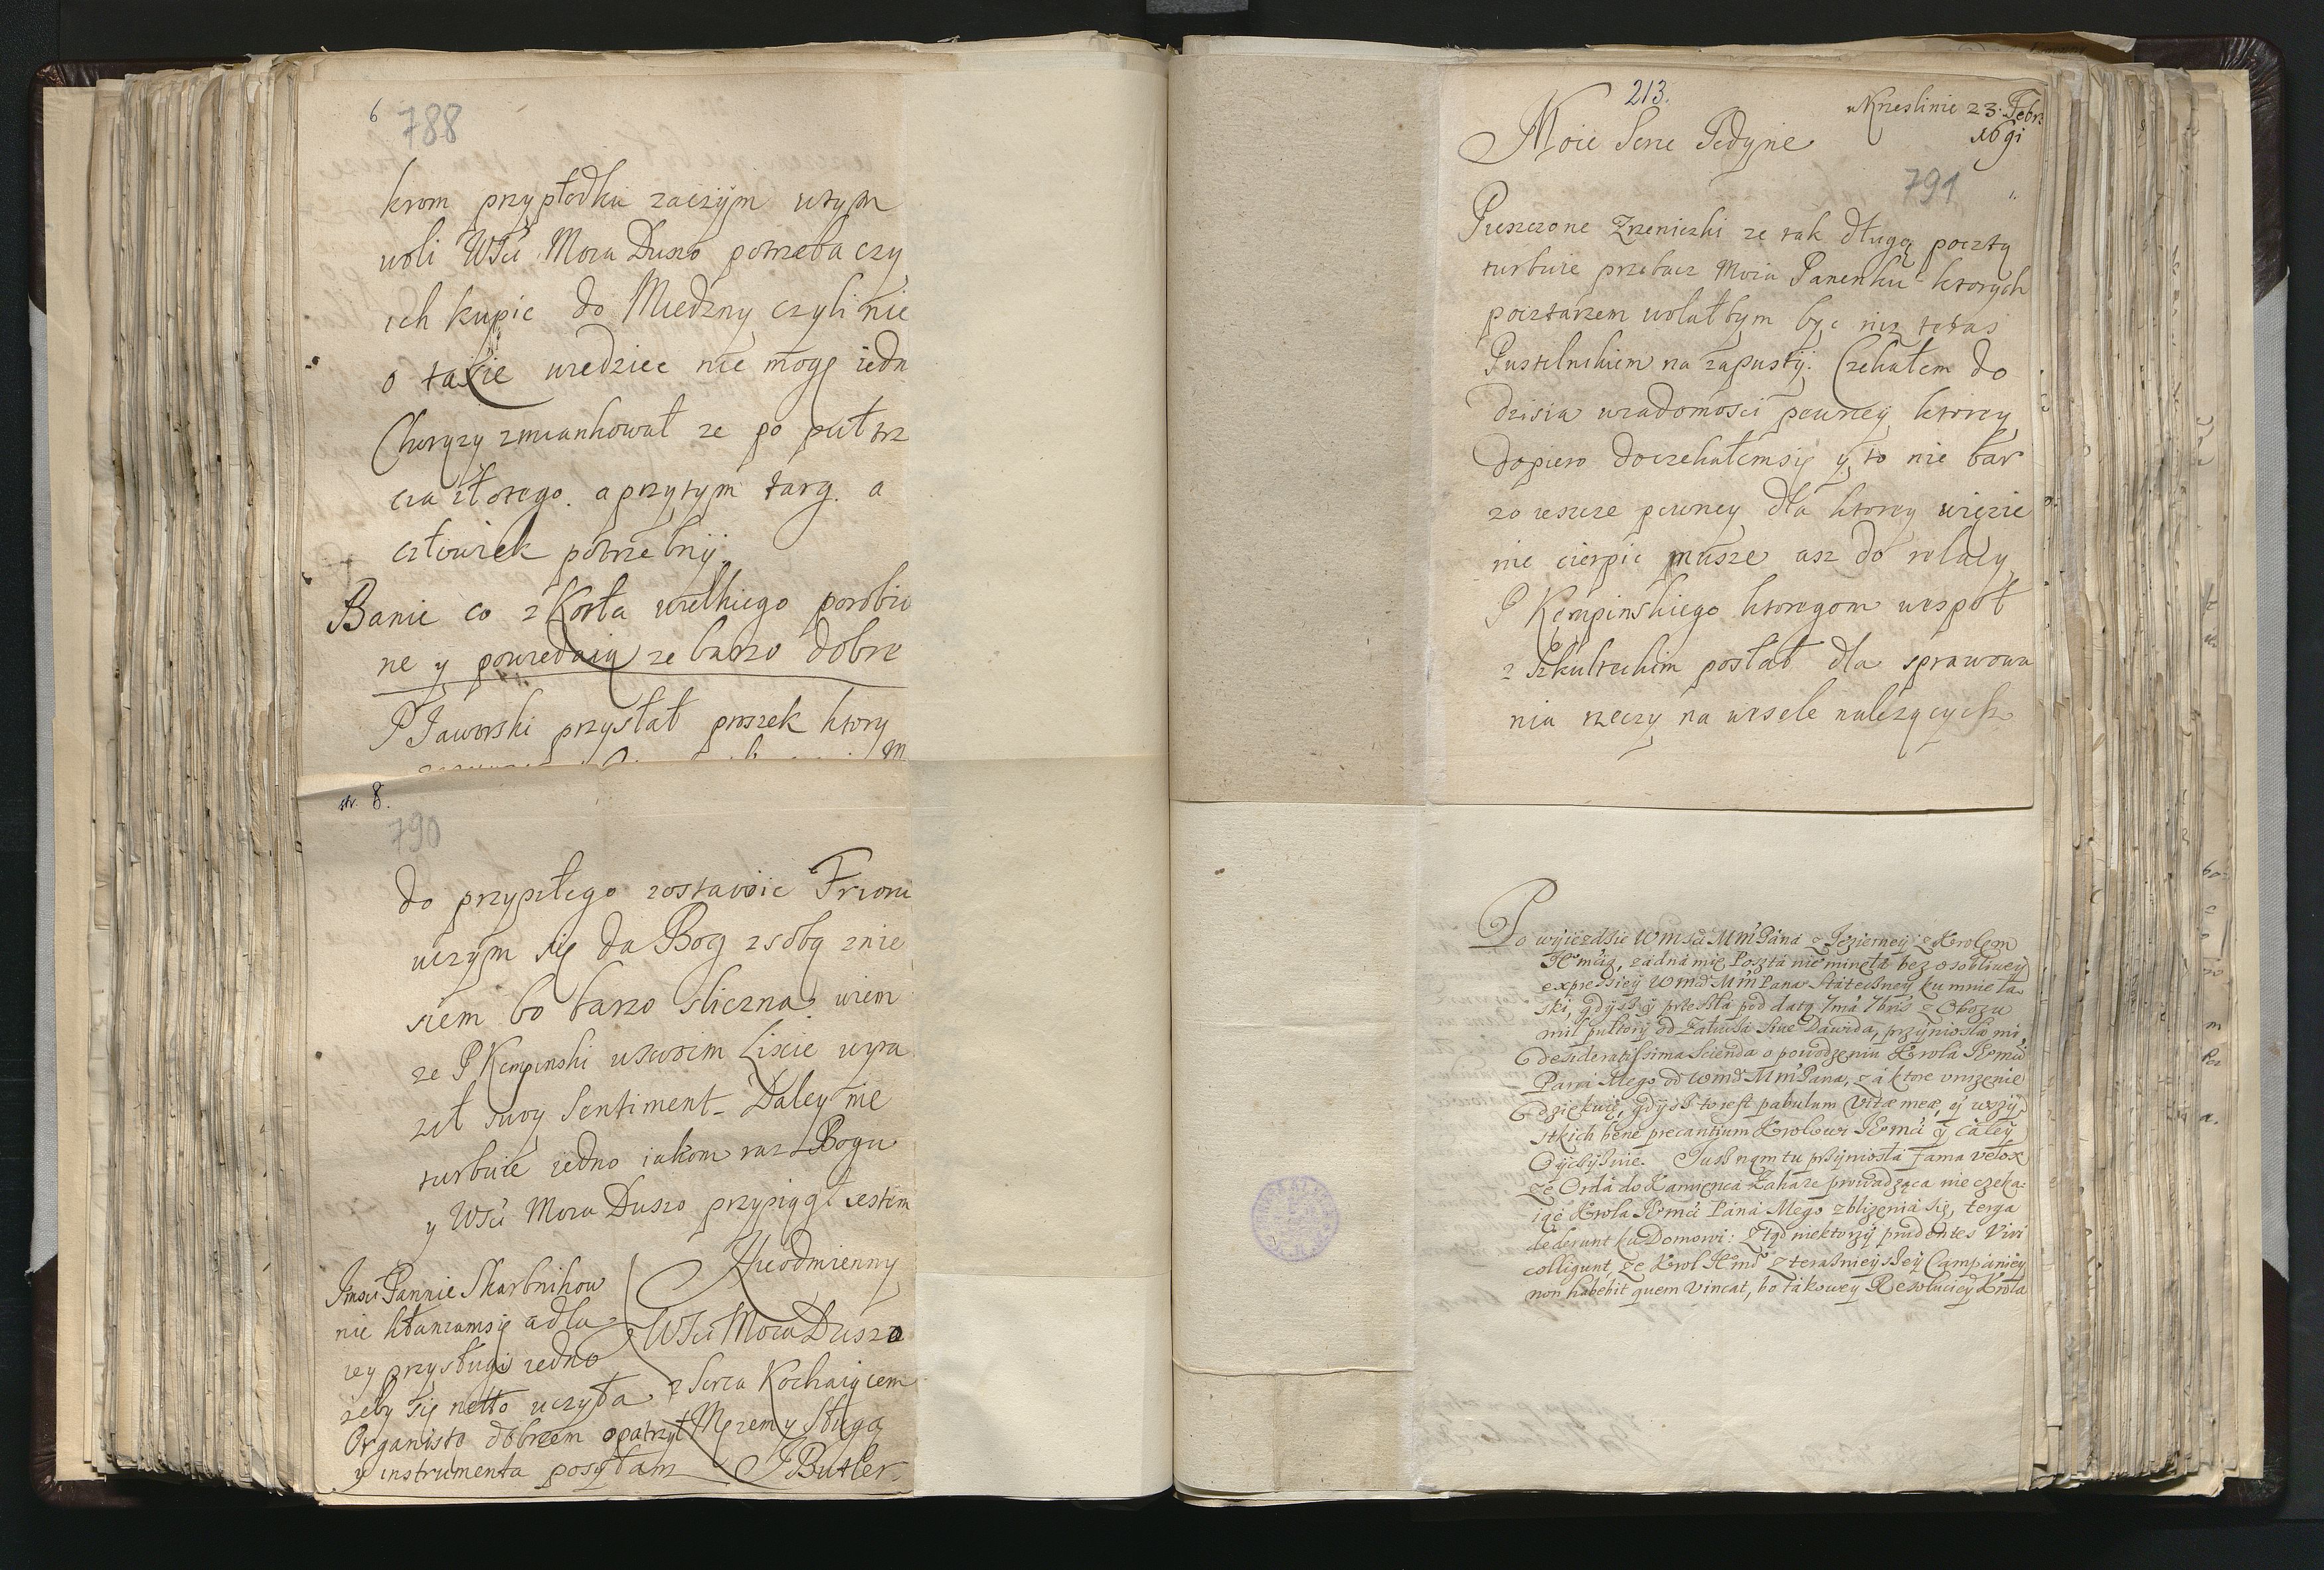 6
788
krom przypłodku zaczym wtym
woli WSci Moia Duszo potrzeba czy
ich kupic do Miedzny czyli nie
o takie wiedziec nie mogę iedn
Chorązy zmiankował ze po puł trz
cia złotego. a przytym targ. a
człowiek potrzebny
Banie co z Kotła wielkiego porobio
ne y powiedaią ze barzo dobre
P Jaworski przysłał proszek ktory
str. 8.
790
do przyszłego zostawic
uczym się da Bog zsobą znie
siem bo barzo sliczna, wiem
ze P Kempinski wswoim Liscie wyra
zeł swoy Sentiment Daley nie
turbuie iedno iakom raz Bogu
y WSci Moia Duszo przysiągł iestem
Nieodmienny
WSci Moia Duszo
z Serca Kochaiącem
Męzem y Sługą
J Butler
Imsci Pannie Skarbnikow
nie kłaniamsię adla
iey przysługi iedno
zeby się netto uczyła
Organistę dobrzem opatrzył
y instrumenta posyłam
213.
wKrzeslinie 23. Febr:
1691
Moie Serce Jedyne
791
Pieszczone Zrzeniczki ze tak długą pocztą
turbuie przebacz Moia Panenku ktorych
pocztarzem wolałbym byc niz teras
Pustelnikiem na zapusty. Czekałem do
dzisia wiadomosci pewney, ktorey
dopiero doczekałemsię y to nie bar
zo ieszcze pewney dla ktorey więzie
nie cierpic musze asz do relacy
P Kempinskiego ktoregom wespoł
z Szkulteckim posłał dla sprawowa
nia rzeczy na wesele nalezących
Po wyiezdzie WmSci MmPana z Jezierney z Krolem
JKmcią, zadna mię Poszta nie mineła bez osobliwey
expressiey Wmsci MmPana Stateczney ku mnie ła
ski, gdysz y przeszła pod datą 7ma 7bris z Obozu
mil pułtory od Załusia siue Dawida, przyniosła mi,
desideratissima Scienda o powodzeniu Krola JKmci
Pana Mego od Wmsci MmPana, za ktore unizenie
dziękuię, gdysz to iest pabulum Vitæ meæ, y wszy
stkich bene precantium Krolowi JKmci y całey
Oyczyznie. Jusz nąm tu przyniosła Fama velox
Ze Orda do Kamienca Zaharę prowadząca nie czeka
iąc Krola JKmci Pana Mego zblizenia się, terga
dederunt ku Domowi: Ztąd niektorzy prudentes Viri
colligunt, Ze Krol JKmsc z teraznieyszey Campaniey
non habebit quem Vincat, bo takowey Rezoluciey Krola